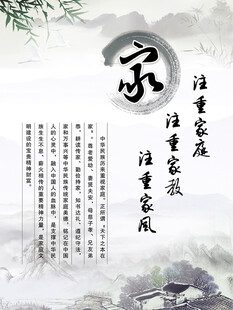 家
注重家庭
注重家教
注重家风
中华民族历来重视家庭。正所谓“天下之本在
家”。尊老爱幼、妻贤夫安，母慈子孝、兄友弟
恭，耕读传家、勤俭持家，知书达礼、遵纪守法，
家和万事兴等中华民族传统家庭美德，铭记在中国
人的心灵中，融入中国人的血脉中，是支撑中华民
族生生不息、薪火相传的重要精神力量，是家庭文
明建设的宝贵精神财富。